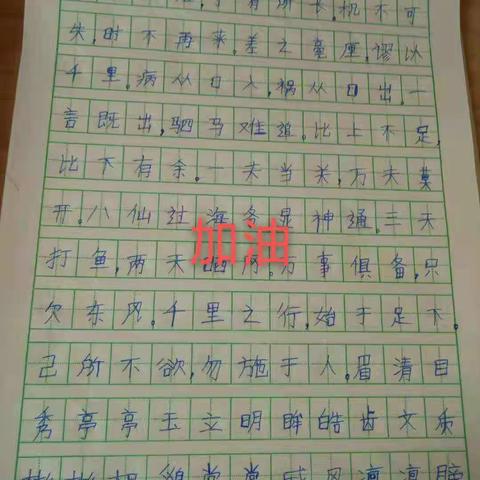 有所长,机不可
失,时不再来。差之毫厘,谬以
千里。病从口入,祸从口出。一
言既出,驷马难追。比上不足,
比下有余。一夫当关,万夫莫
开。八仙过海各显神通。三天
打鱼,两天晒网。万事俱备,只
欠东风。千里之行,始于足下。
己所不欲,勿施于人。眉清目
秀亭亭玉立明眸皓齿文质
彬彬相貌堂堂威风凛凛
加油